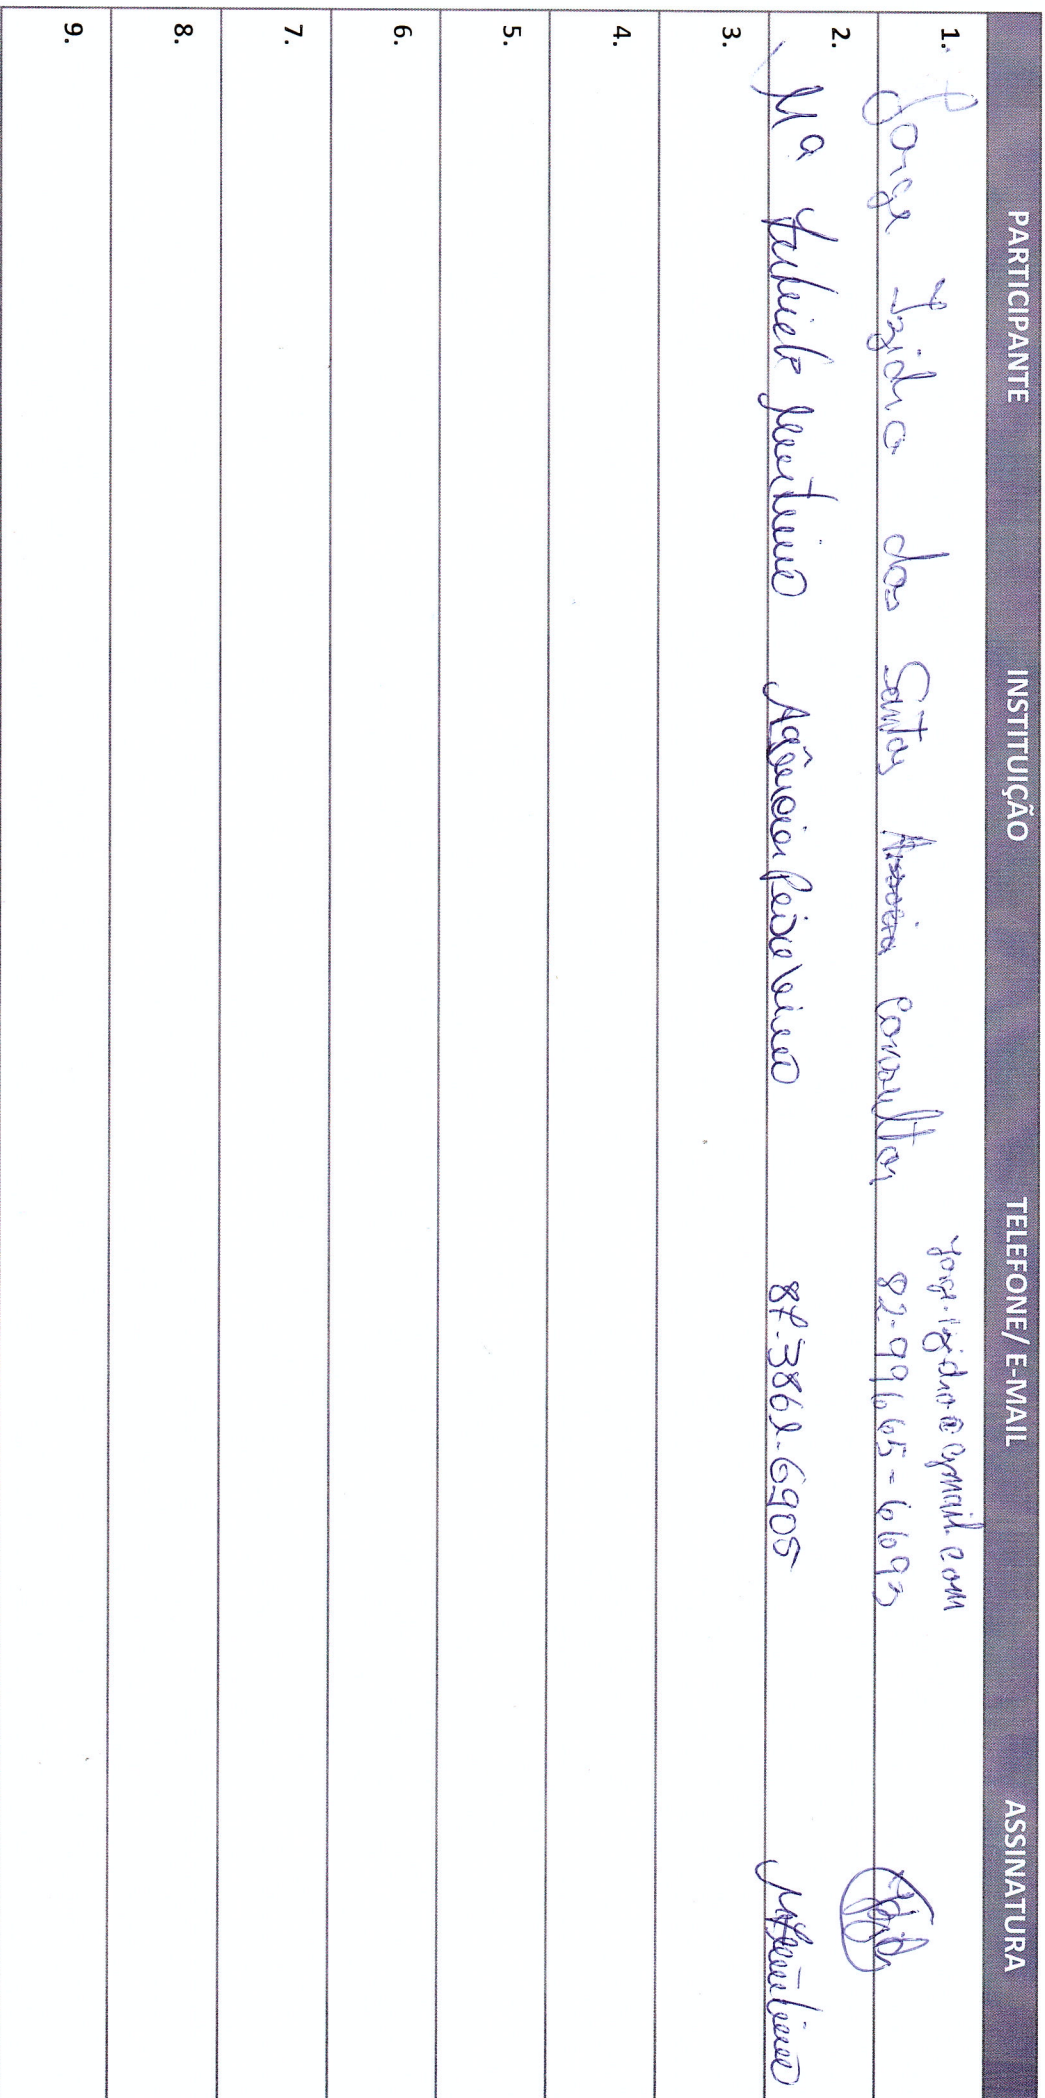 PARTICIPANTE INSTITUIÇÃO TELEFONE/ E-MAIL ASSINATURA
1. Jorge Izidro dos Santos Consultor jorge.izidro@gmail.com
82-99665-6693
2. Mª Monteiro Agência Peixe Vivo 87-3861-6905
3.
4.
5.
6.
7.
8.
9.